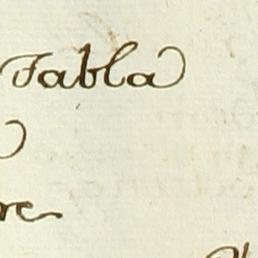 Tabla
re